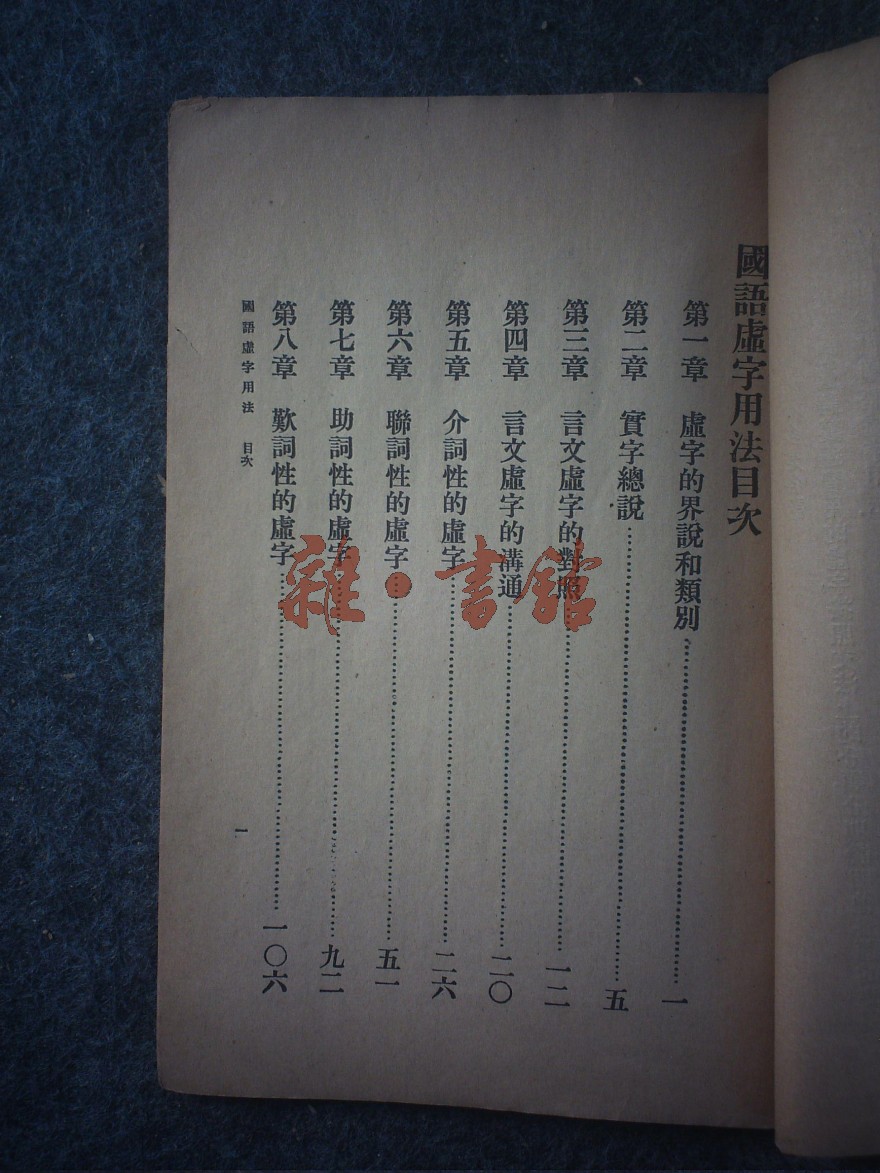 國語虛字用法目次
第一章 虛字的界說和類別……一
第二章 實字總說……五
第三章 言文虛字的對照……一二
第四章 言文虛字的溝通……二〇
第五章 介詞性的虛字……二六
第六章 聯詞性的虛字……五一
第七章 助詞性的虛字……九二
第八章 歎詞性的虛字……一〇六
國語虛字用法 目次 一
雜·書館